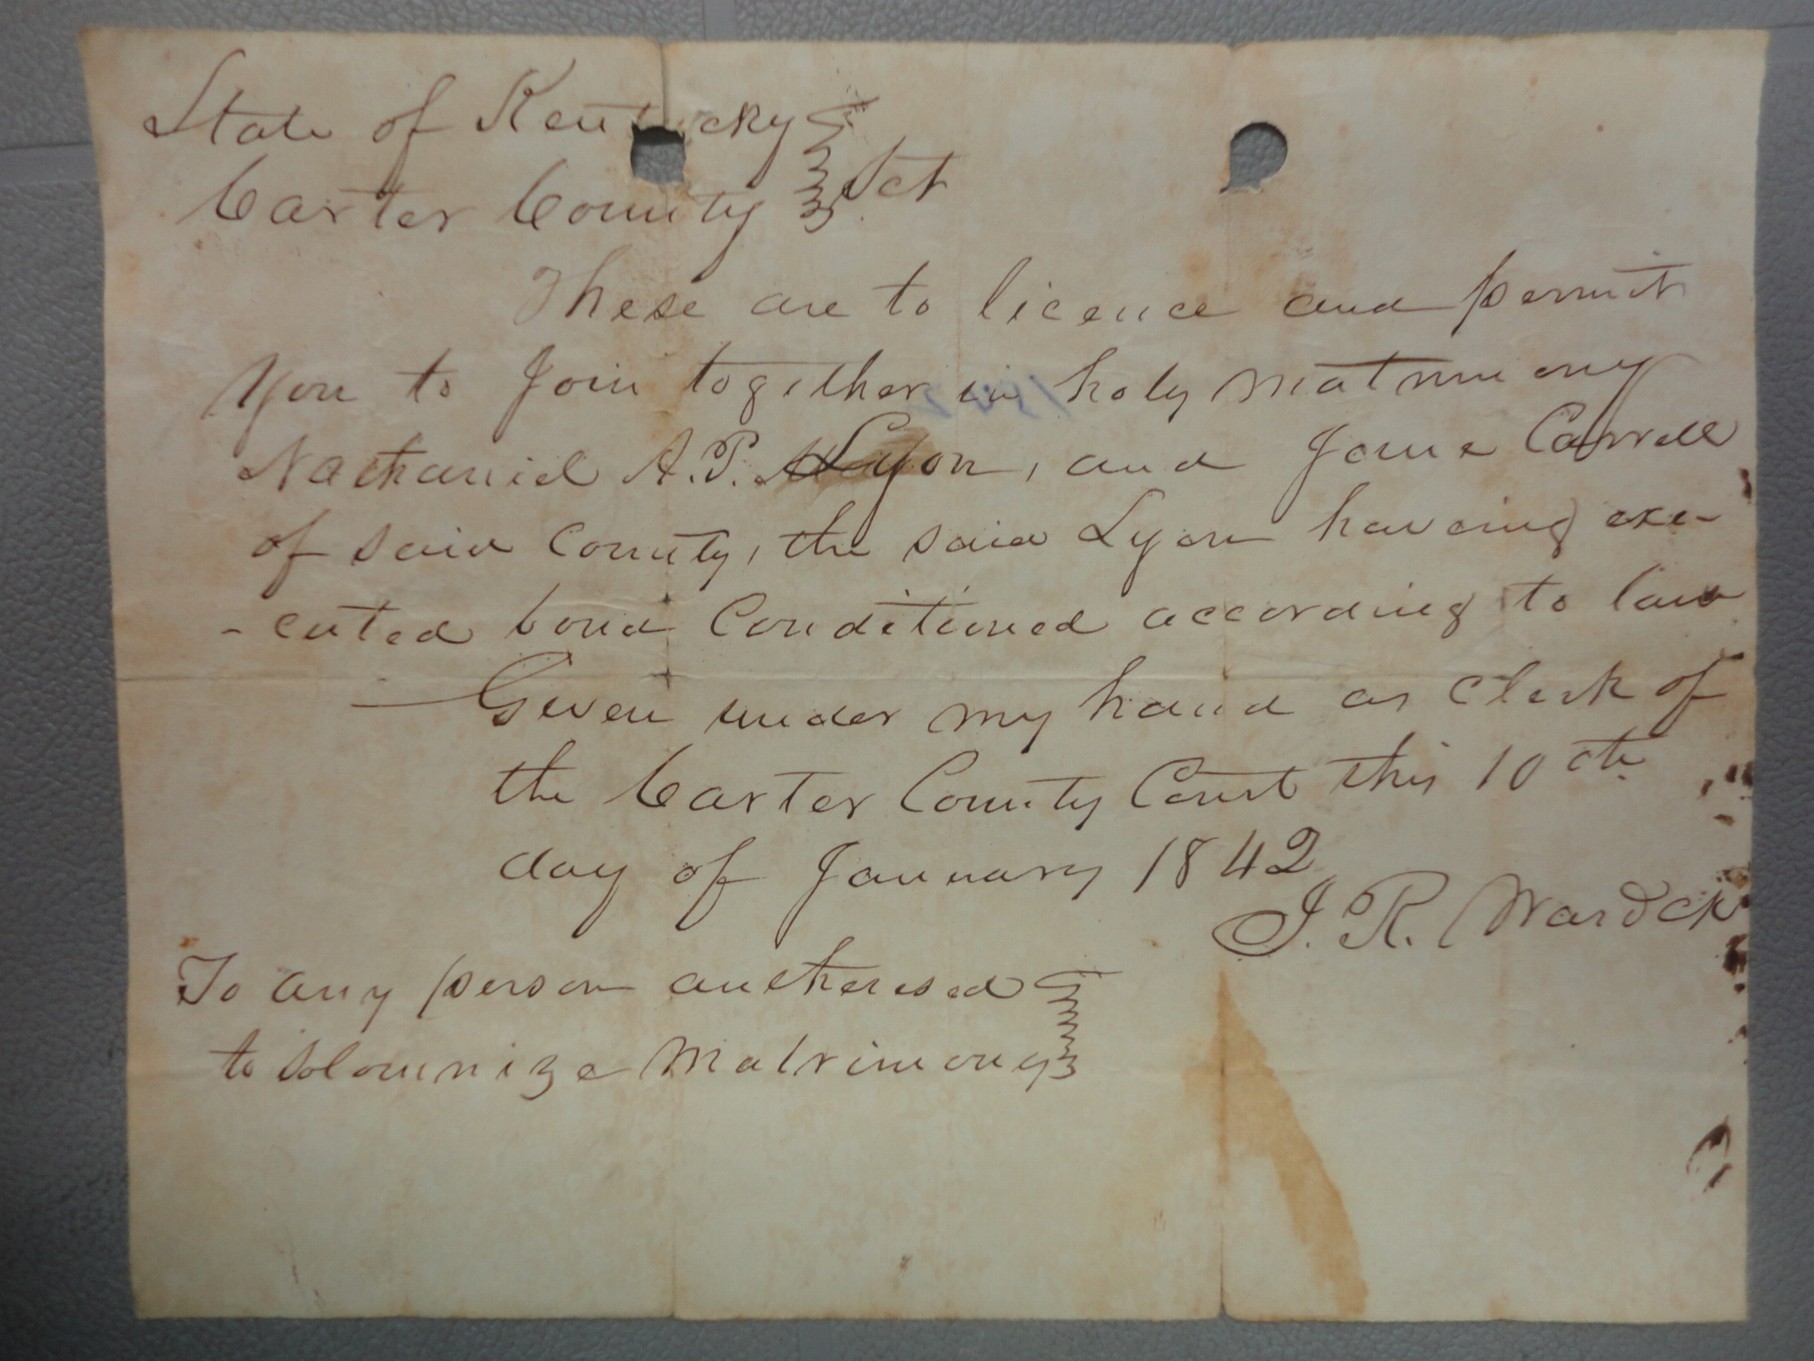 State of Kentucky
Carter County Sct
These are to licence and permit
you to Join together in holy matrimony
Nathaniel A. P. Lyon, and Jane Carrell
of said County, the said Lyon having exe-
-cuted bond Conditioned according to law
Given under my hand as Clerk of
the Carter County Court this 10th
day of January 1842
J. R. Ward Ck
To any person autherised
to solomnize Matrimony